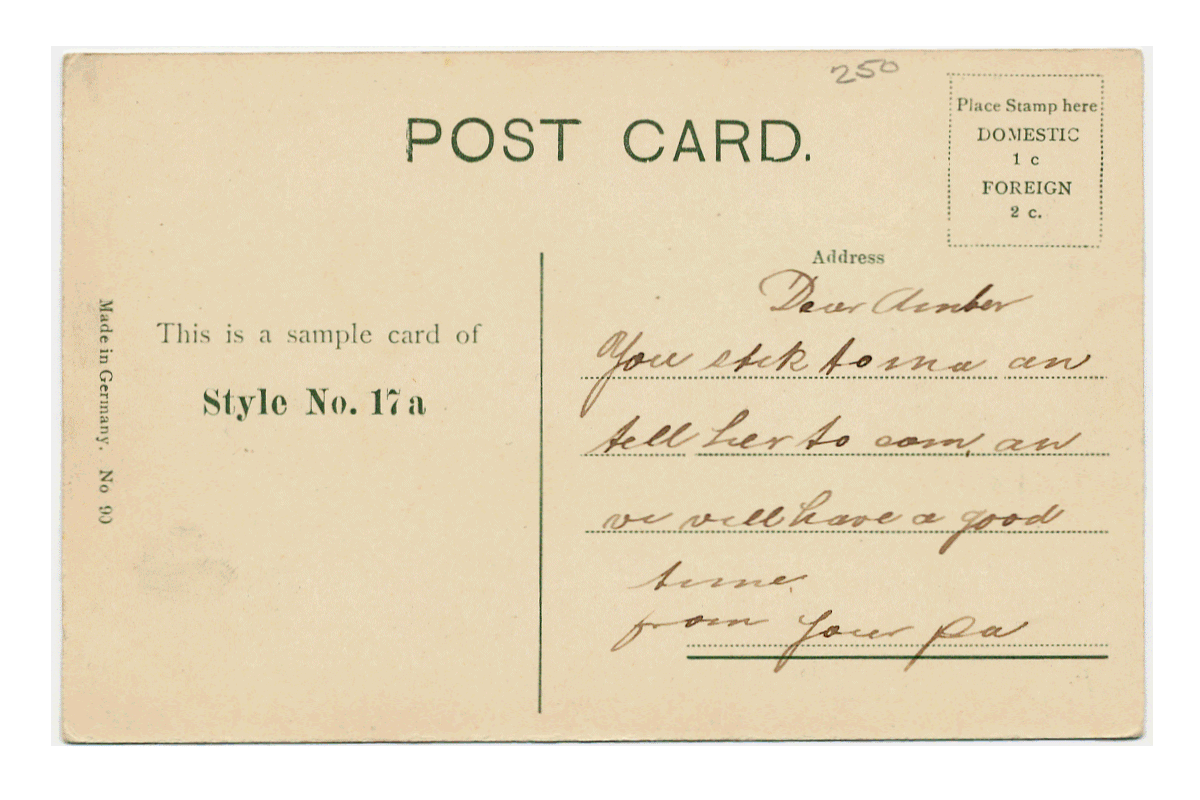 250
POST CARD.
Place Stamp here
DOMESTIC
1 c
FOREIGN
2 c.
Made in Germany. No 90
This is a sample card of
Style No. 17a
Address
Dear Amber
You stick to ma an
tell her to com, an
we will have a good
time.
from your pa